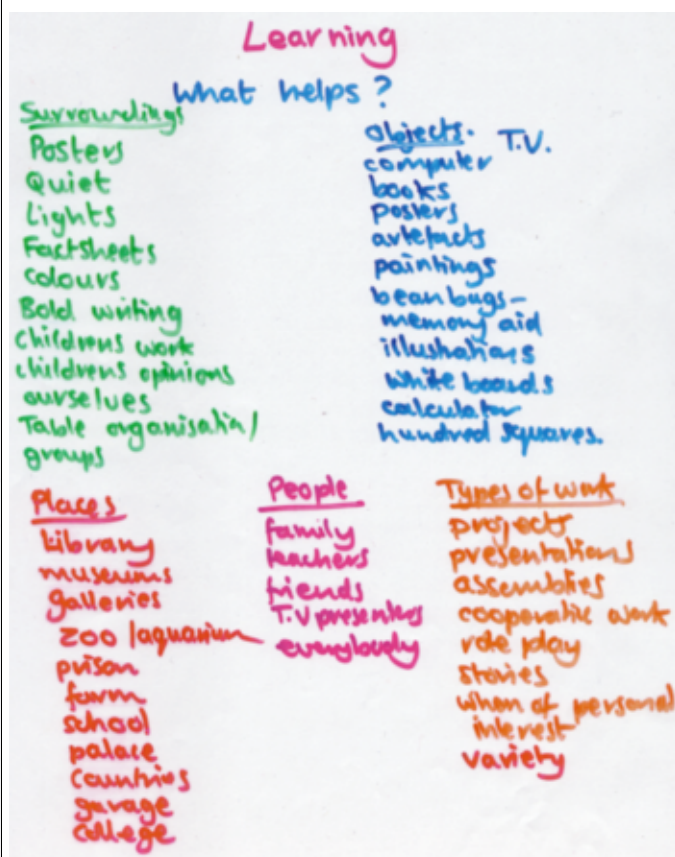 Learning
What helps?
Surroundings
Posters
Quiet
Lights
Factsheets
colours
Bold writing
childrens work
childrens opinions
ourselves
Table organisation/
groups
objects. T.V.
computer
books
posters
artefacts
paintings
bean bugs-
memory aid
illustrations
white boards
calculator
hundred squares.
Places
Library
museums
galleries
zoo/aquarium
prison
farm
school
palace
countries
garage
college
People
family
teachers
friends
T.V presenters
everybody
Types of work
projects
presentations
assemblies
cooperative work
role play
stories
when of personal
interest
variety